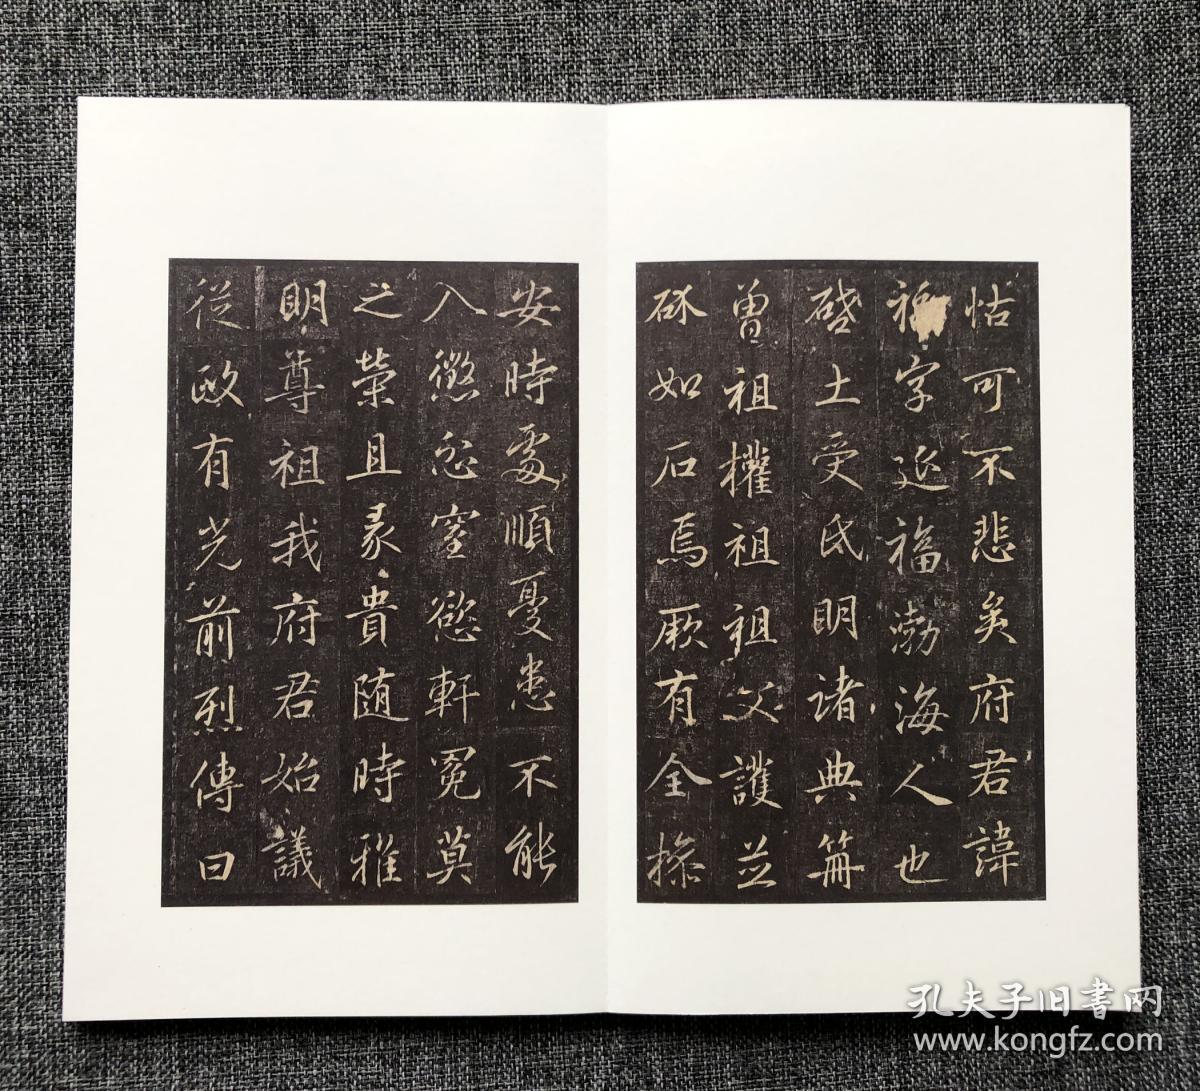 怙可不悲矣府君諱
福字延福渤海人也
啓土受氏明諸典冊
曾祖權祖祖父護並
砎如石焉厥有全操
安時處順憂患不能
入懲忿窒慾軒冕莫
之榮且彖貴随時雅
明尊祖我府君始議
從政有光前烈傳曰
孔夫子旧書网
www.kongfz.com